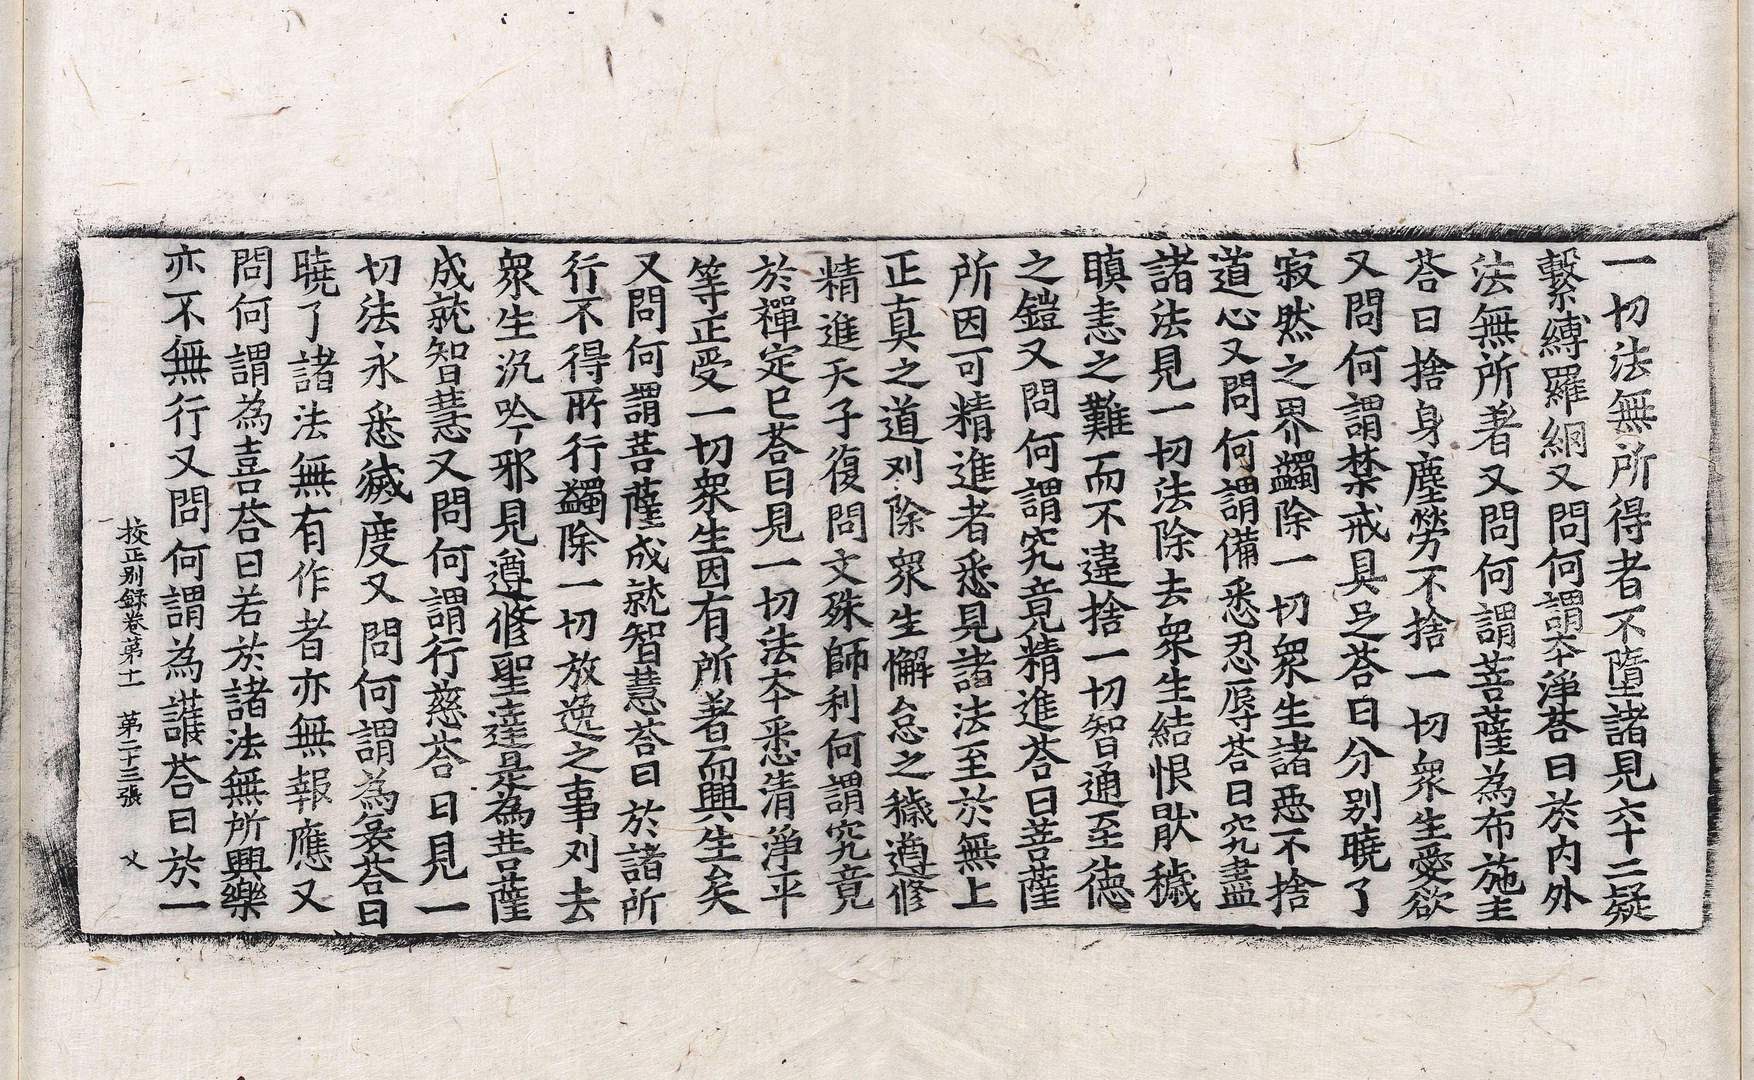 一切法無所得者不墮諸見六十二疑
繫縛羅網又問何謂本淨荅曰於內外
法無所著又問何謂菩薩為布施主
荅曰捨身塵勞不捨一切衆生愛欲
又問何謂禁戒具足荅曰分別曉了
寂然之界蠲除一切衆生諸惡不捨
道心又問何謂備悉忍辱荅曰究盡
諸法見一切法除去衆生結恨猒穢
瞋恚之難而不違捨一切智通至德
之鎧又問何謂究竟精進荅曰菩薩
所因可精進者悉見諸法至於無上
正真之道刈除衆生懈怠之穢遵修
精進天子復問文殊師利何謂究竟
於禪定已荅曰見一切法本悉清淨平
等正受一切衆生因有所著而興生矣
又問何謂菩薩成就智慧荅曰於諸所
行不得所行蠲除一切放逸之事刈去
衆生沉吟邪見遵修聖達是為菩薩
成就智慧又問何謂行慈荅曰見一
切法永悉滅度又問何謂為哀荅曰
曉了諸法無有作者亦無報應又
問何謂為喜荅曰若於諸法無所興樂
亦不無行又問何謂為護荅曰於一
校正別錄卷第十一 第二十三張 乂